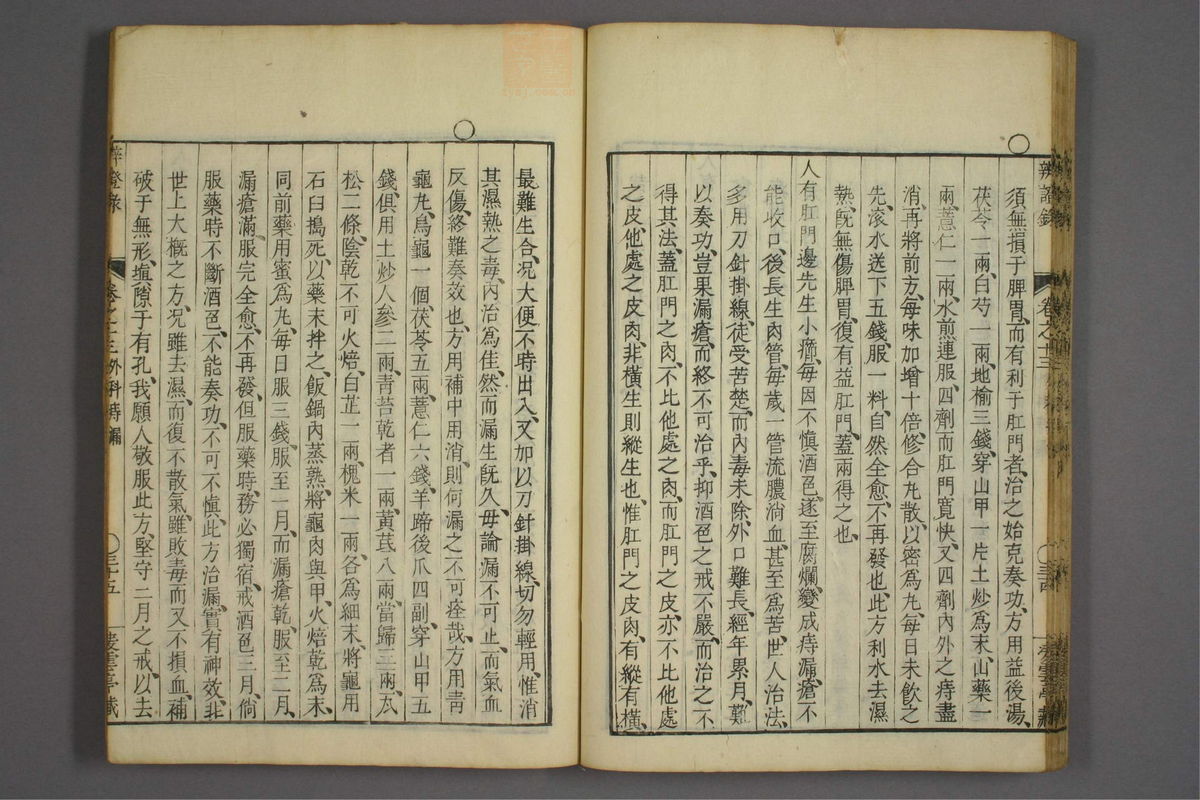 辨證錄 卷之十三 三十四
須無損于脾胃、而有利于肛門者、治之始克奏功、方用益後湯、
茯苓一兩、白芍一兩、地榆三錢、穿山甲一片土炒爲末、山藥一
兩、薏仁一兩、水煎連服、四劑而肛門寬快、又四劑內外之痔盡
消、再將前方、每味加增十倍修合丸散、以密爲丸、每日未飲之
先、滾水送下五錢、服一料、自然全愈、不再發也、此方利水去濕
熱、旣無傷脾胃、復有益肛門、蓋兩得之也
人有肛門邊先生小癤、每因不慎酒色、遂至腐爛、變成痔漏、瘡不
能收口、後長生肉管、每歲一管流膿淌血、甚至爲苦、世人治法、
多用刀針掛線、徒受苦楚、而內毒未除、外口難長、經年累月、難
以奏功、豈果漏瘡、而終不可治乎、抑酒色之戒不嚴、而治之不
得其法、蓋肛門之肉、不比他處之肉、而肛門之皮、亦不比他處
之皮、他處之皮肉、非橫生則縱生也、惟肛門之皮肉、有縱有橫、
最難生合、况大便不時出入、又加以刀針掛線、切勿輕用、惟消
其濕熱之毒、內治爲佳、然而漏生旣久、毋論漏不可止、而氣血
反傷、終難奏效也、方用補中用消、則何漏之不可痊哉、方用青
龜丸、烏龜一個茯苓五兩、薏仁六錢、羊蹄後爪四副、穿山甲五
錢、俱用土炒人參二兩、青苔乾者一兩、黃芪八兩、當歸三兩、瓦
松二條、陰乾不可火焙、白芷一兩、槐米一兩、各爲細末、將龜用
石臼搗死、以藥末拌之、飯鍋內蒸熟、將龜肉與甲、火焙乾爲末、
同前藥用蜜爲丸、每日服三錢、服至一月、而漏瘡乾、服至二月、
漏瘡滿、服完全愈、不再發、但服藥時、務必獨宿、戒酒色三月、倘
服藥時不斷酒色、不能奏功、不可不慎、此方治漏、實有神效、非
世上大概之方、况雖去濕、而復不散氣、雖敗毒而又不損血、補
破于無形、塡隙于有孔、我願人敬服此方、堅守二月之戒、以去
卷之十三外科痔漏 三十五